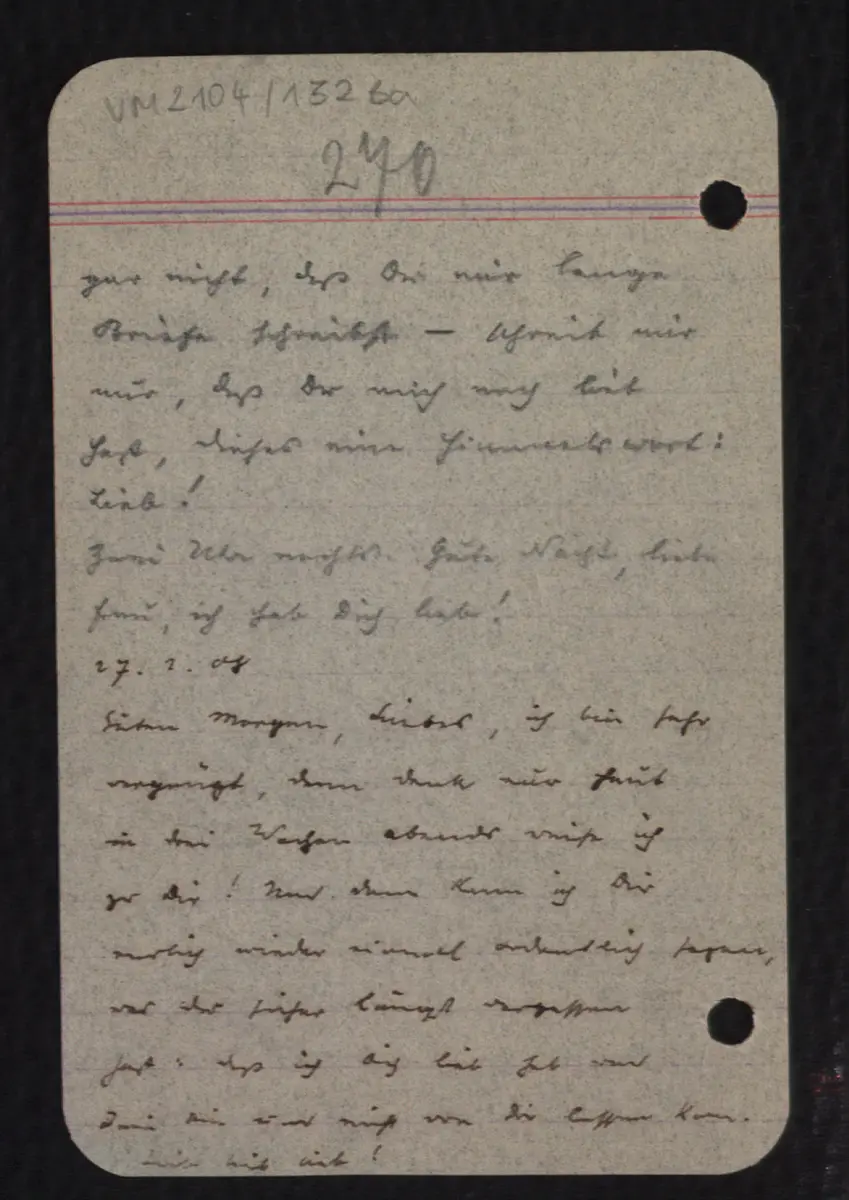 VM2104/132 ba
270
gar nicht, daß Du mir lange
Briefe schreibst – schreib mir
nur, daß Du mich noch lieb
hast, dieses eine Himmelswort:
Lieb!
Zwei Uhr nachts. Gute Nacht, liebe
Frau, ich hab Dich lieb!
27. 2. 08
Guten Morgen, Liebes, ich bin sehr
vergnügt, denn denk nur heut
in drei Wochen abends reise ich
zu Dir! Und dann kann ich Dir
endlich wieder einmal ordentlich sagen,
was du sicher längst vergessen
hast: daß ich Dich lieb hab und
Dein bin und nicht von Dir lassen kann.
lieb!